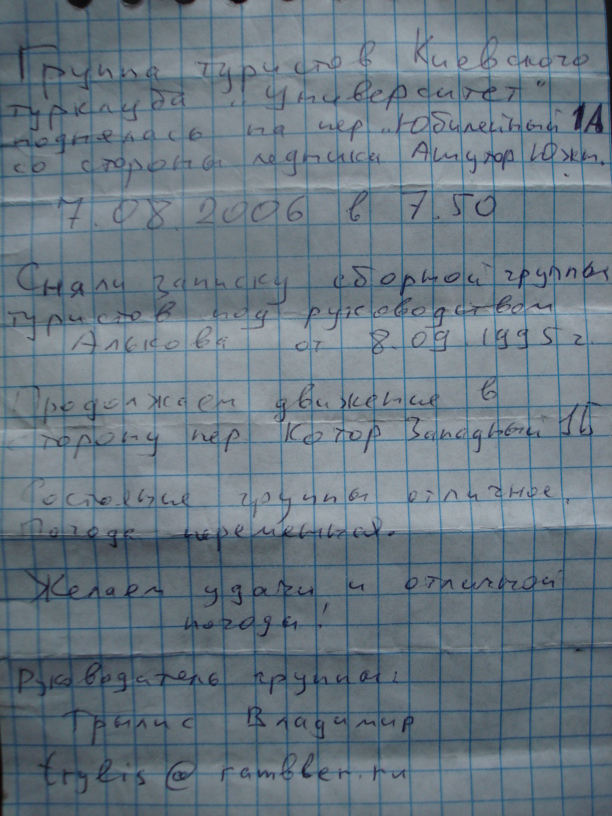 Группа туристов Киевского
турклуба "Университет"
поднялась на пер "Юбилейный 1А
со стороны ледника Ашутор Южн.
7.08.2006 в 7.50
Сняли записку сборной группы
туристов под руководством
Алькова от 8.09 1995 г.
Продолжаем движение в
сторону пер Котор Западный 1Б
Состояние группы отличное.
Погода переменная.
Желаем удачи и отличной
погоды!
Руководитель группы:
Трылис Владимир
trylis@rambler.ru